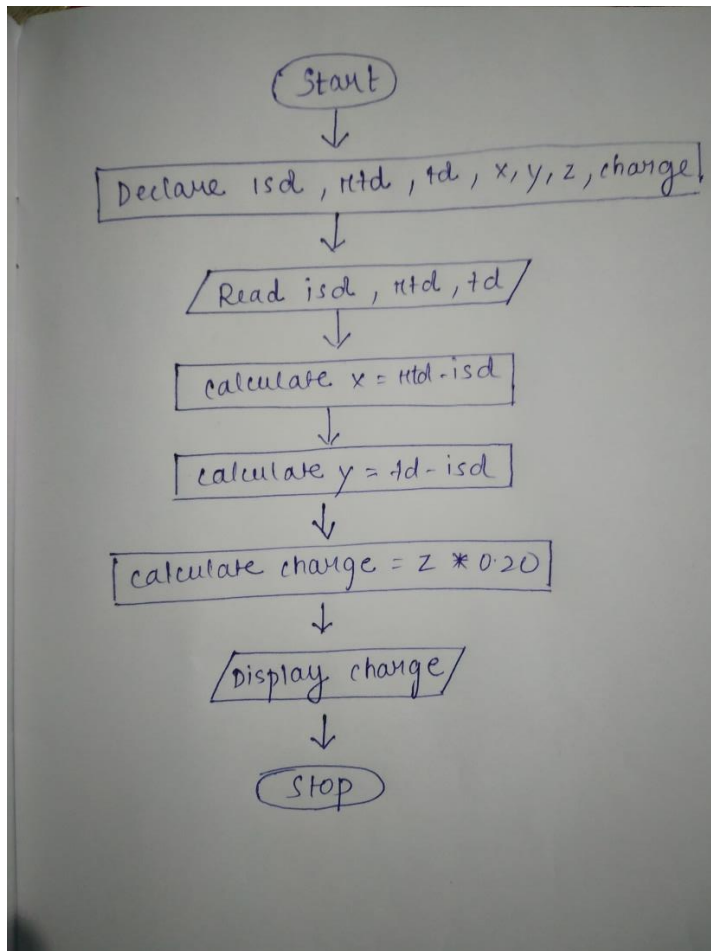 Start
Declare isd, rtd, td, x, y, z, charge
Read isd, rtd, td
calculate x = rtd - isd
calculate y = td - isd
calculate charge = z * 0.20
Display charge
Stop